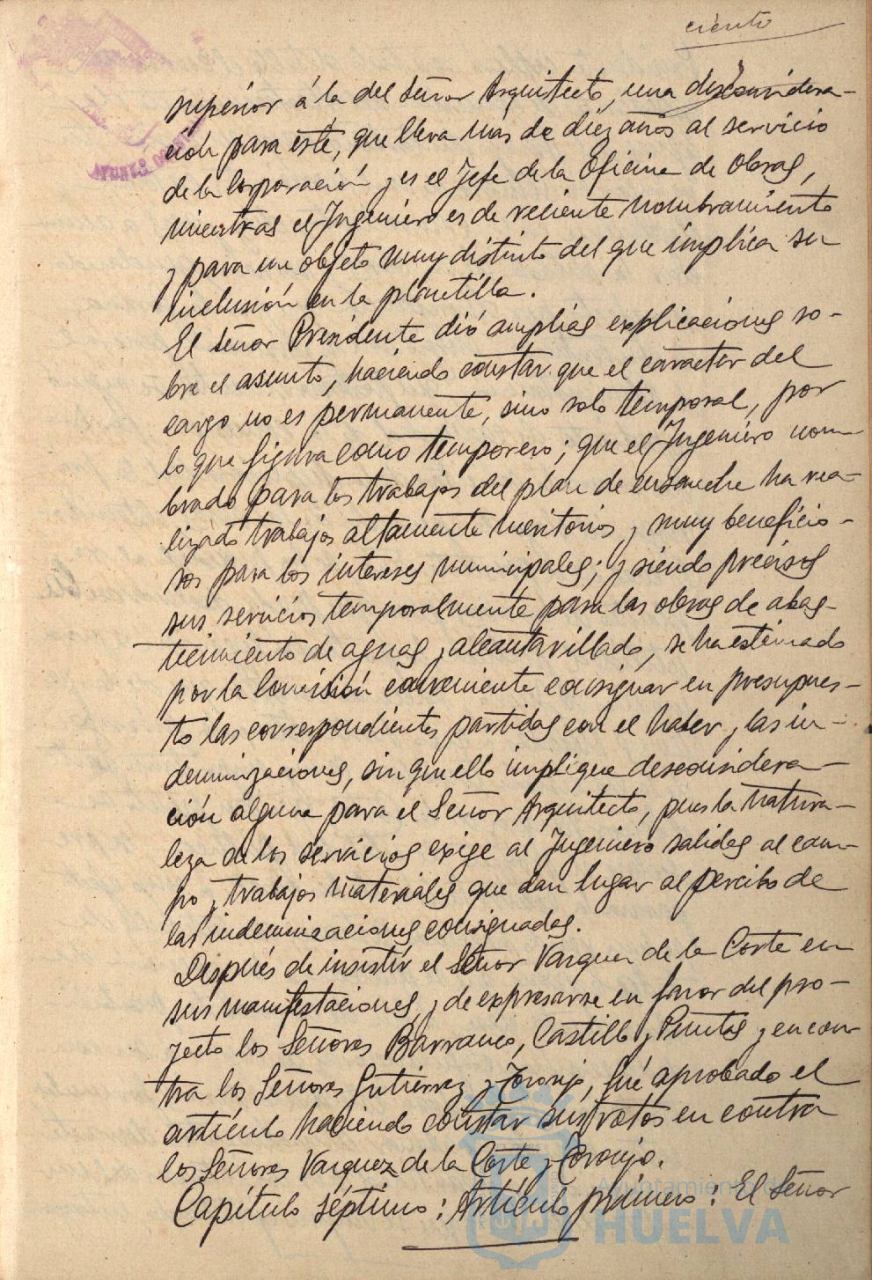 ciento
superior á la del Señor Arquitecto, una desconsidera-
ción para éste, que lleva mas de diez años al servicio
de la Corporación y es el Jefe de la Oficina de Obras,
mientras el Ingeniero es de reciente nombramiento
y para un objeto muy distinto del que implica su
inclusión en la plantilla.
El Señor Presidente dió amplias explicaciones so-
bre el asunto, haciendo constar que el caracter del
cargo no es permanente, sino solo temporal, por
lo que figura como temporero; que el Ingeniero nom-
brado para los trabajos del plan de ensanche ha rea-
lizado trabajos altamente meritorios y muy beneficio-
sos para los intereses municipales; y siendo precisos
sus servicios temporalmente para las obras de abas-
tecimiento de aguas y alcantarillado, se ha estimado
por la Comisión conveniente consignar en presupues-
to las correspondientes partidas con el haber y las in-
demnizaciones, sin que ello implique desconsidera-
ción alguna para el Señor Arquitecto, pues la natura-
leza de los servicios exige al Ingeniero salidas al cam-
po y trabajos materiales que dan lugar al percibo de
las indemnizaciones consignadas.
Después de insistir el Señor Vazquez de la Corte en
sus manifestaciones, y de expresarse en favor del pro-
yecto los Señores Barranco, Castillo y Puntas y en con-
tra los Señores Gutiérrez y Toronjo, fué aprobado el
artículo haciendo constar sus votos en contra
los Señores Vazquez de la Corte y Toronjo.
Capítulo séptimo: Artículo primero: El Señor
Ayuntamiento de
HUELVA